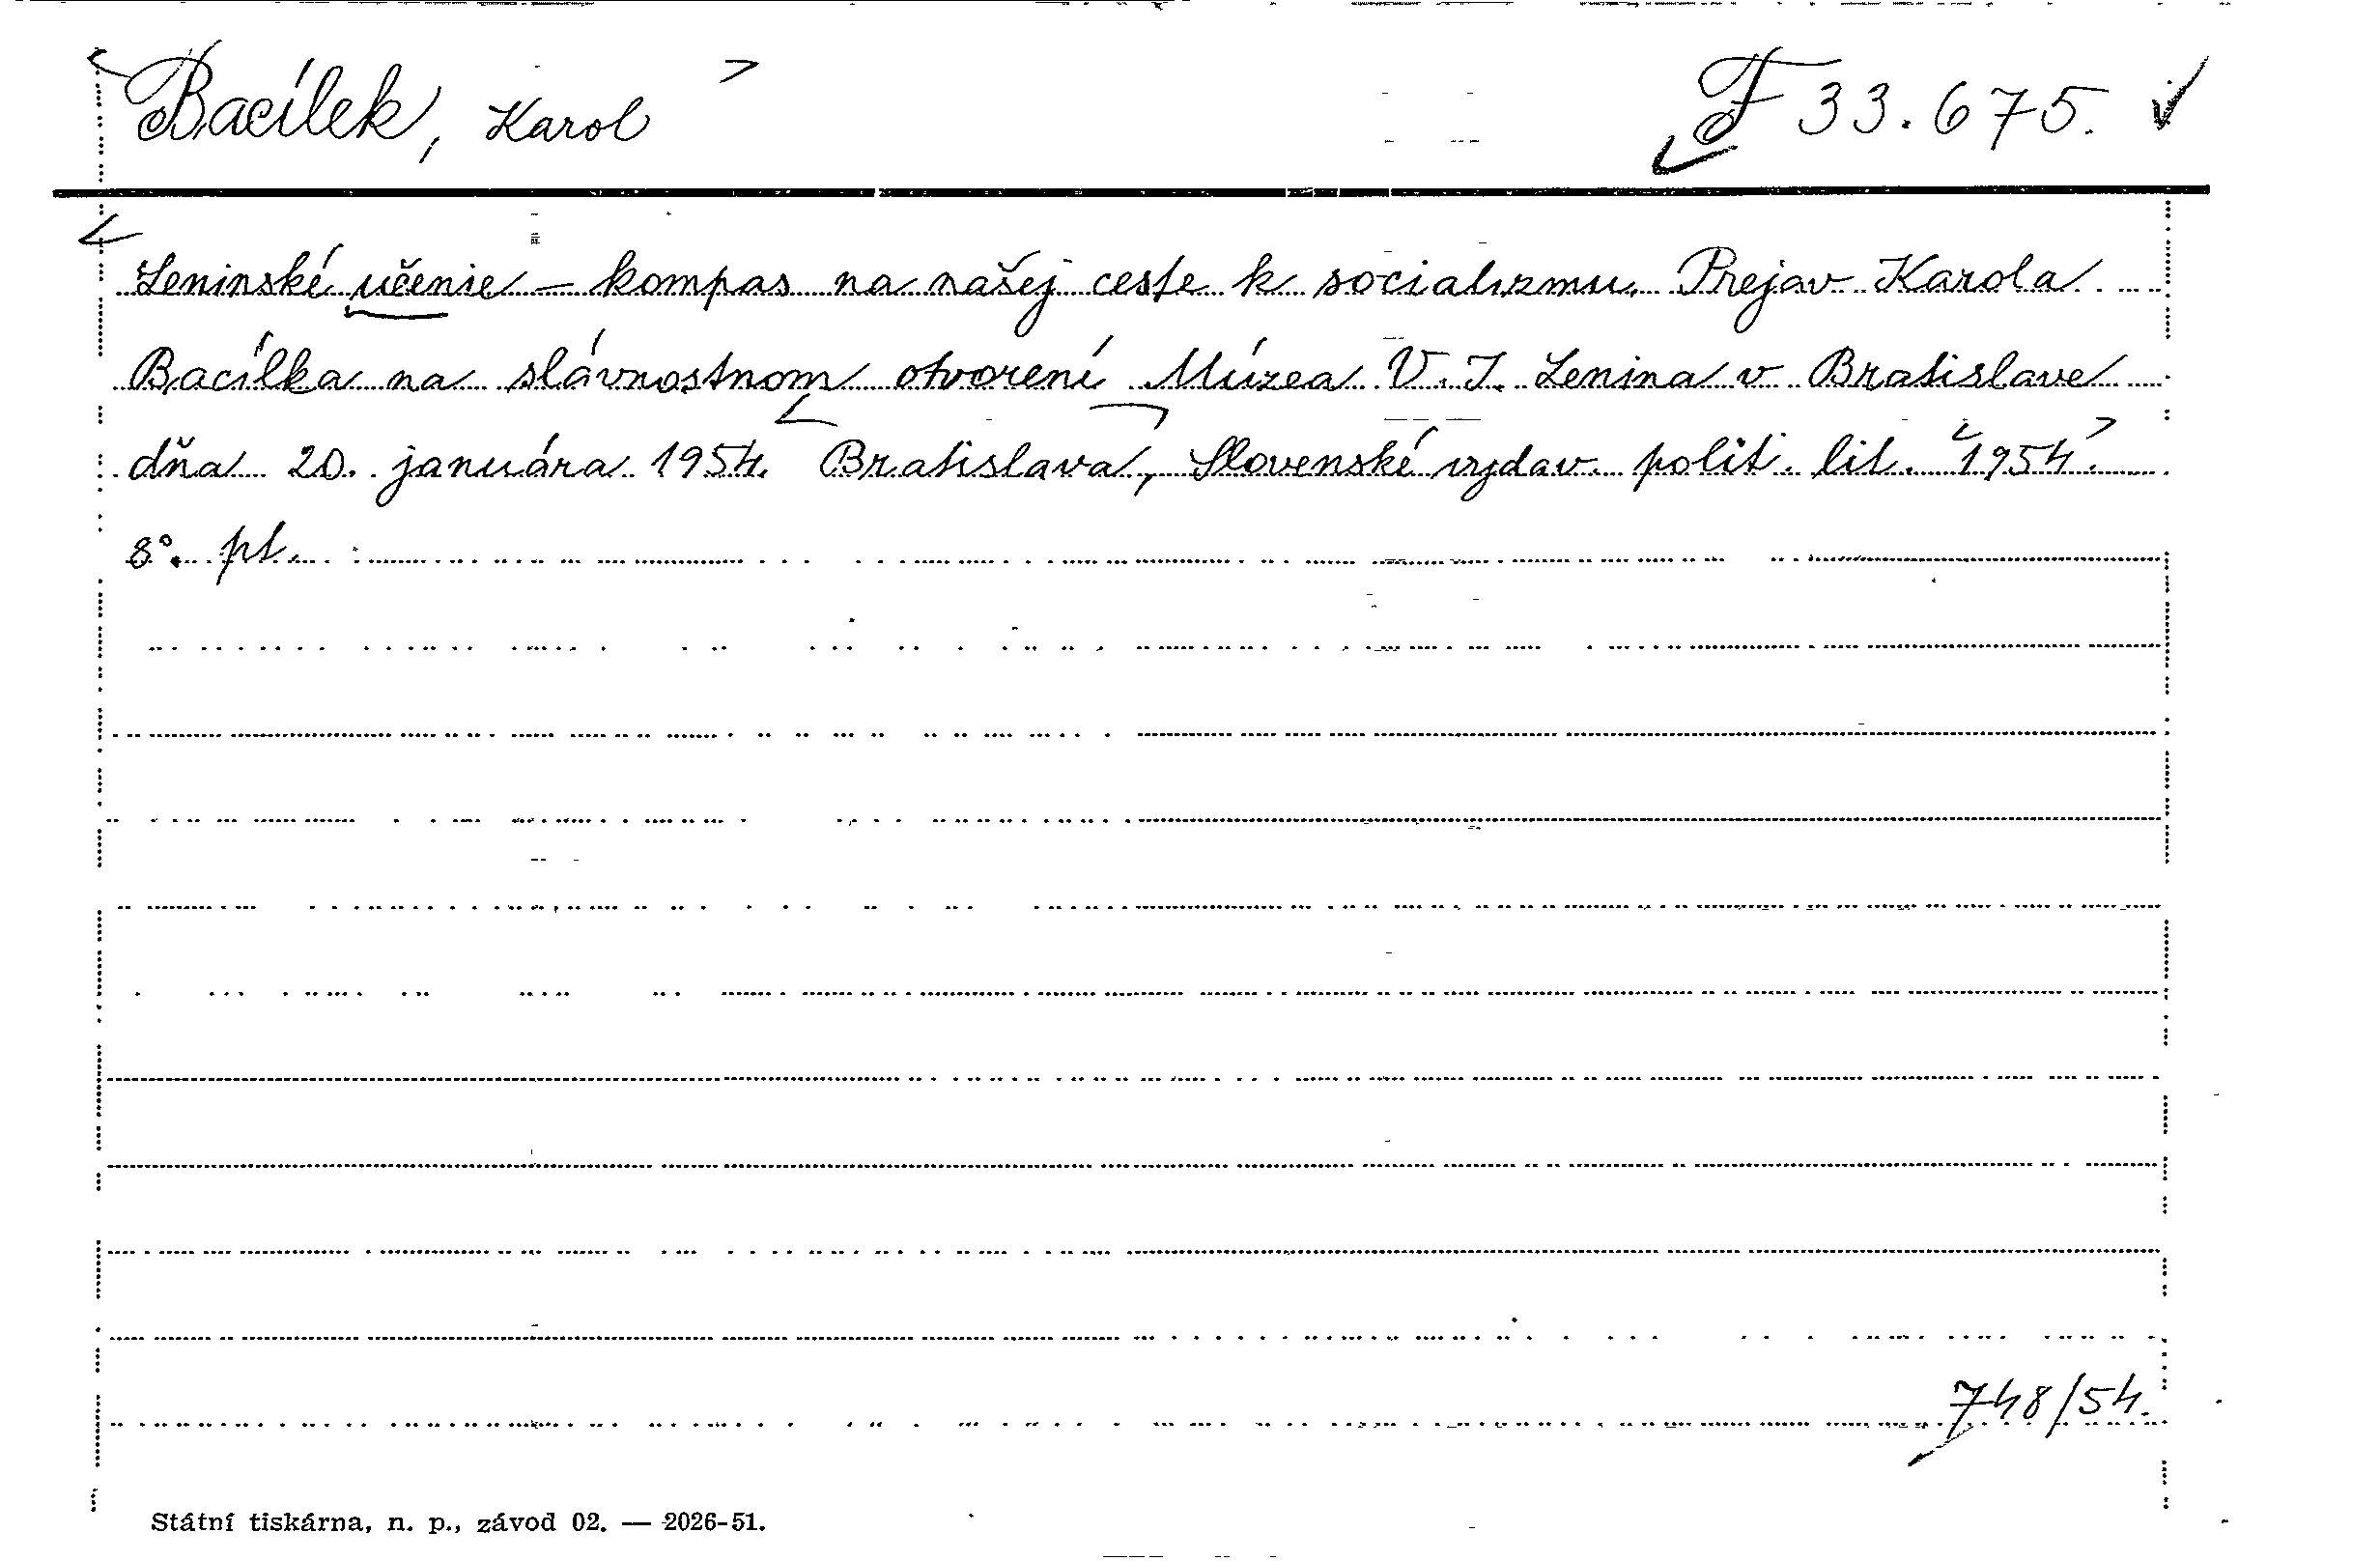 Bacílek, Karol
F 33.675.
Leninské učenie – kompas na našej ceste k socializmu. Prejav Karola
Bacílka na slávnostnom otvorení Múzea V. I. Lenina v Bratislave
dňa 20. januára 1954. Bratislava, Slovenské vydav. polit. lit. 1954.
8°. pt.
748/54.
Státní tiskárna, n. p., závod 02. — 2026-51.